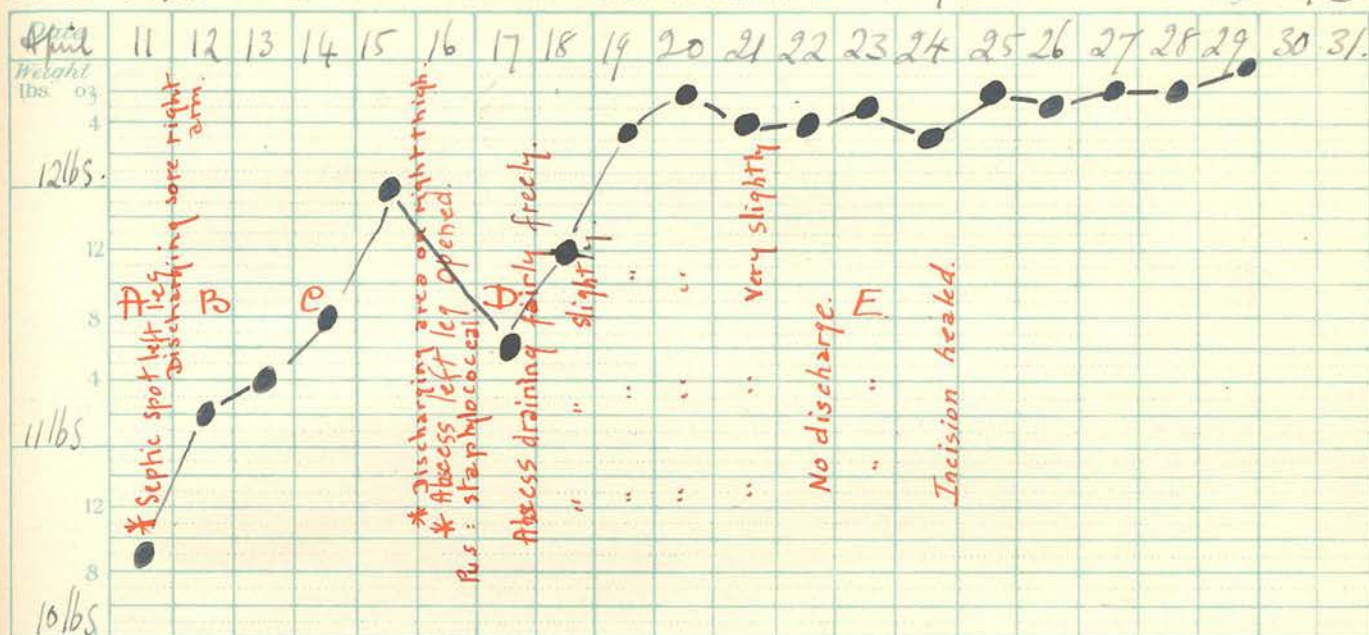 April 11 12 13 14 15 16 17 18 19 20 21 22 23 24 25 26 27 28 29 30 31.
Date
Weight
lbs. oz
4
12 lbs.
12
8
4
11 lbs
12
8
10 lbs
A
B
C
D
E
* Septic spot left leg
Discharging sore right
arm.
* Discharging area on right thigh.
* Abscess left leg opened.
Pus: staphylococcal.
Abscess draining fairly freely.
" " slightly.
" " "
" " "
" " very slightly
No discharge.
" "
Incision healed.